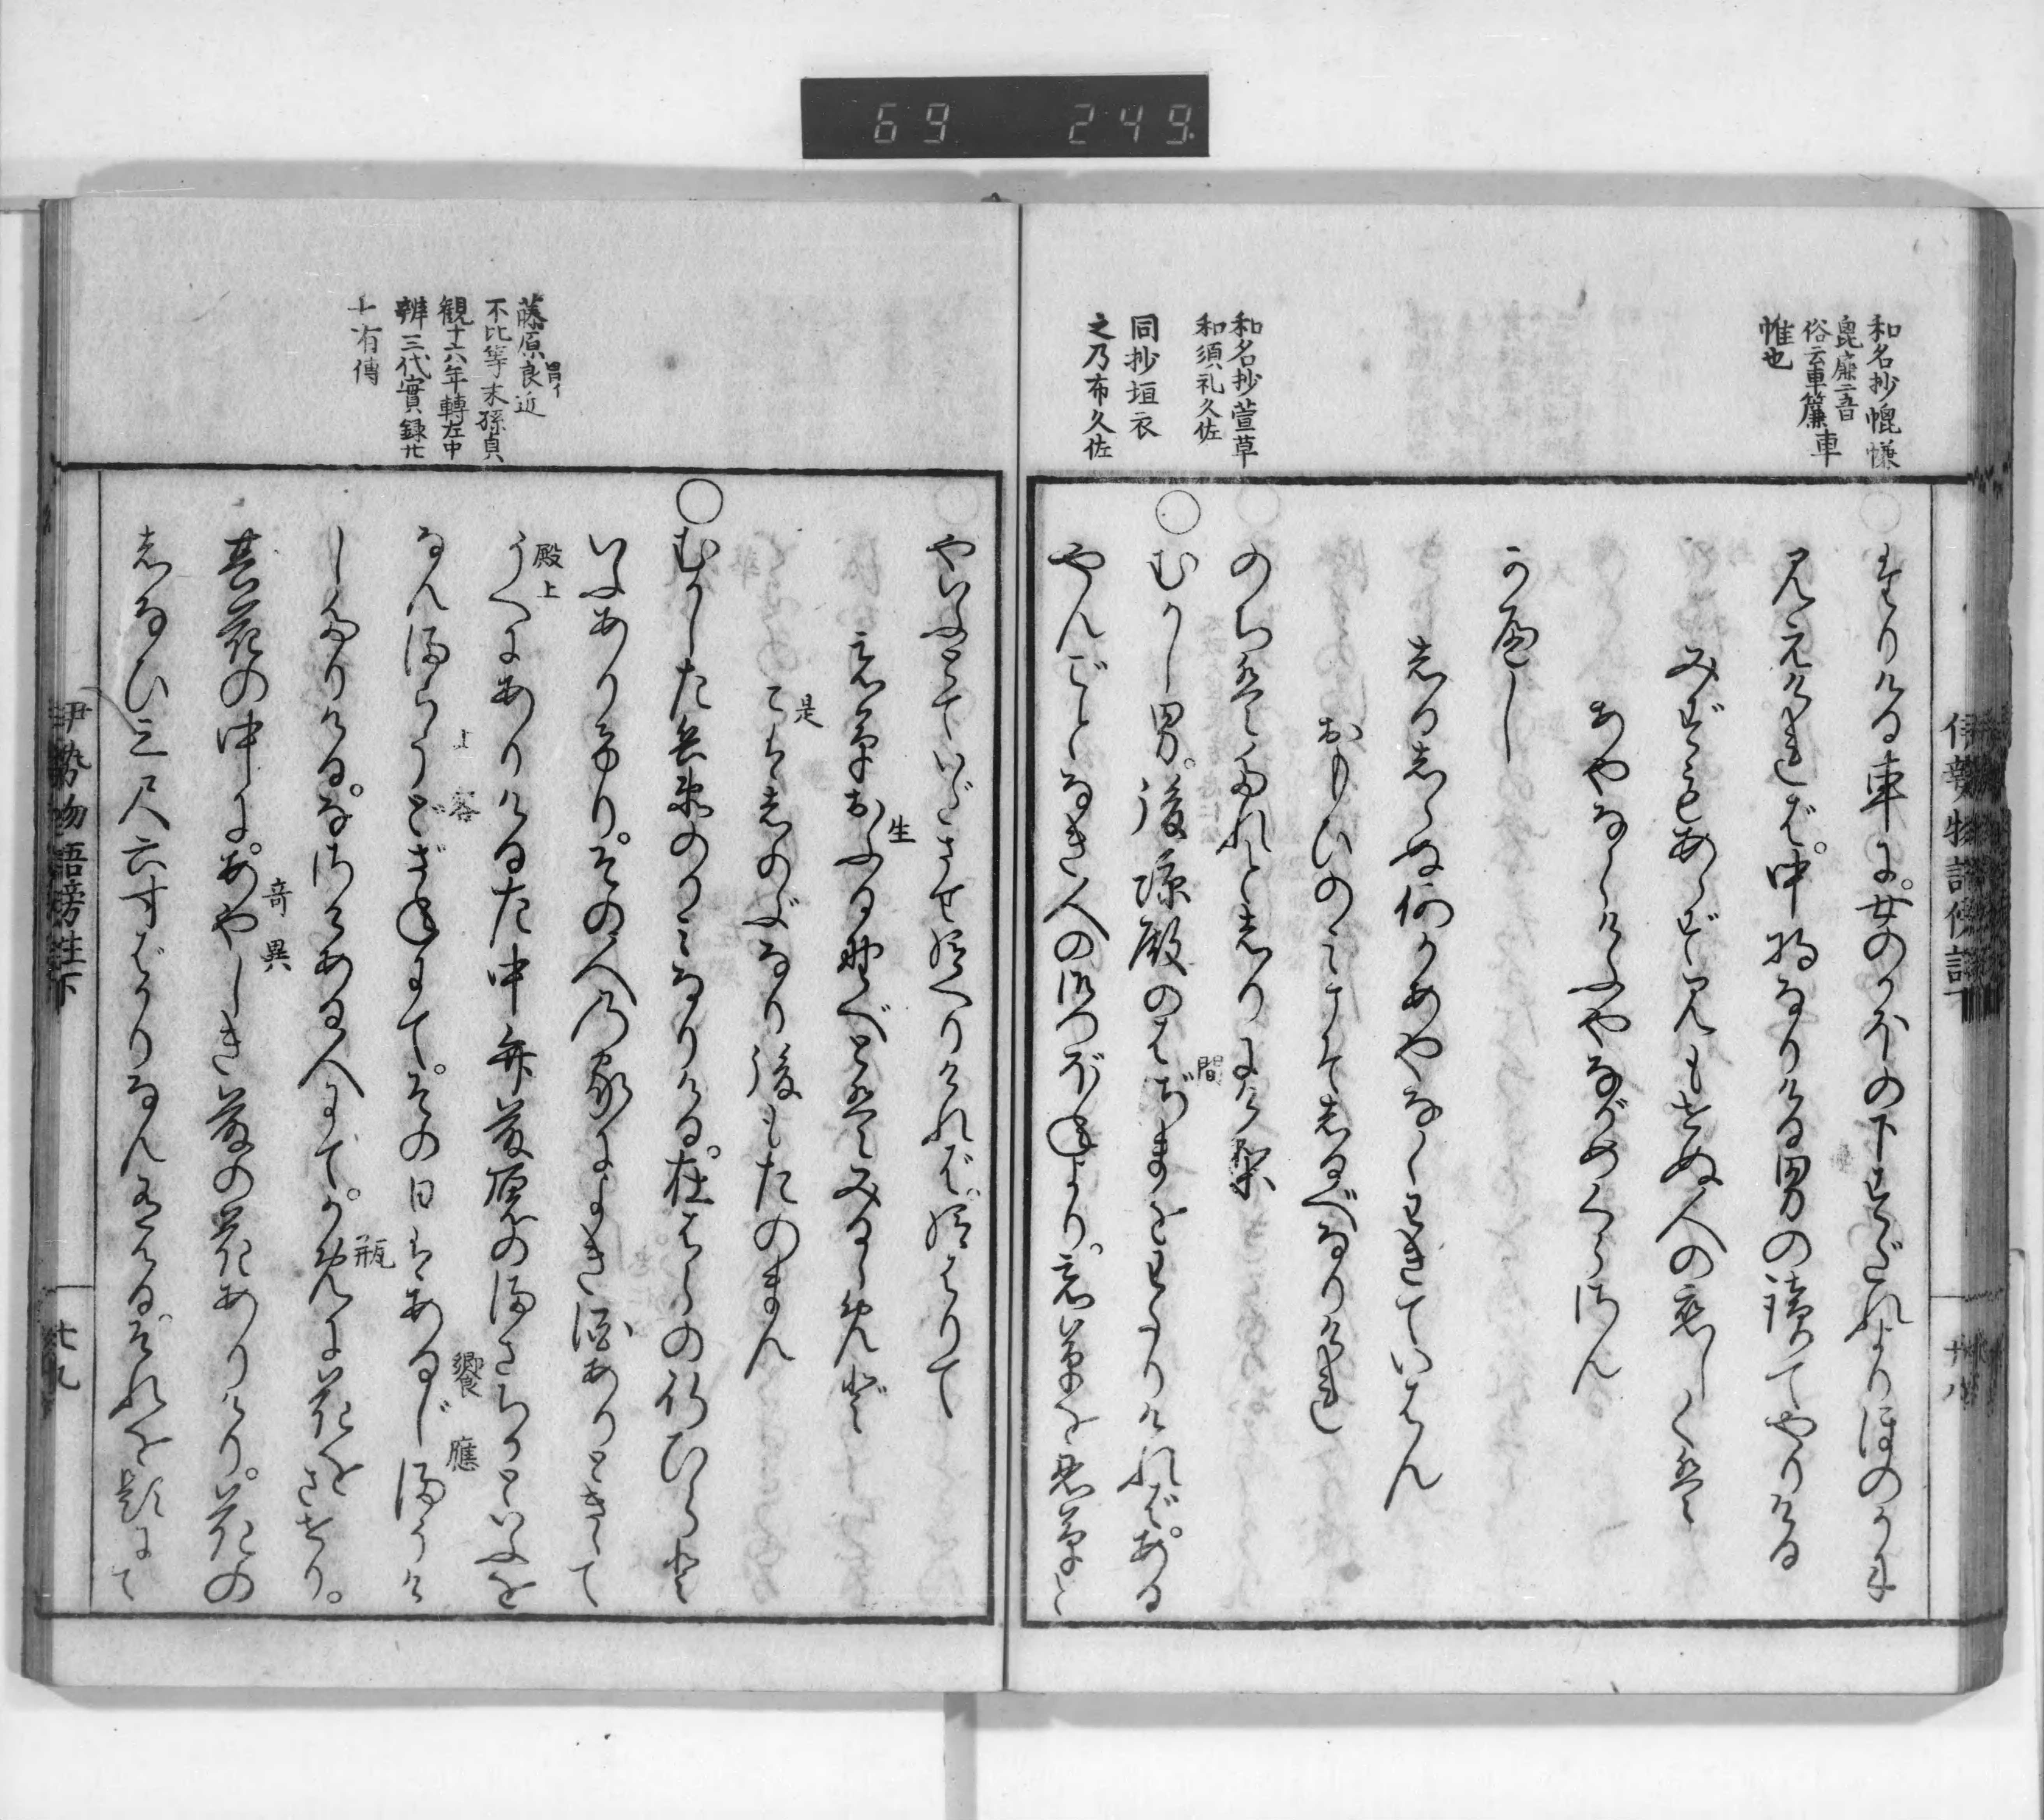 69 249
和名抄幰㡘
毘廉二音
俗云車簾車
帷也
和名抄萱草
和須礼久佐
同抄垣衣
之乃布久佐
たりける車に。女のかほの下すだれよりほのかに
見えければ。中将なりける男の讀てやりける
みずもあらず見もせぬ人の恋しくは
あやなくけふやながめくらさん
かへし
しるしらぬ何かあやなくわきていはん
おもひのみこそしるべなりけれ
のちはたれとしりにけり
○むかし男。後涼殿のはざまをわたりければ。ある
間
やんごとなき人の御つぼねより。忘草を忍草と
伊勢物語傍註下
廿八
藤原良近
不比等末孫貞
観十六年轉左中
辨三代實録廿
七有傳
やいふとていださせ給へりければ。給はりて
忘草おふる野べとはみるらめど
生
こはしのぶなり後もたのまん
是
○むかし左兵衛のかみなりける。在はらの行ひらと
いふありけり。その人の家によき酒ありときゝて
うへにありける左中弁藤原のまさちかといふを
殿上
なんまらうどざねにて。その日はあるじまうけ
上客
饗應
したりける。なさけある人にて。かめに花をさせり。
瓶
其花の中に。あやしき藤の花ありけり。花の
奇異
しなひ三尺六寸ばかりなん有ける。それを題にて
伊勢物語傍註下
廿九